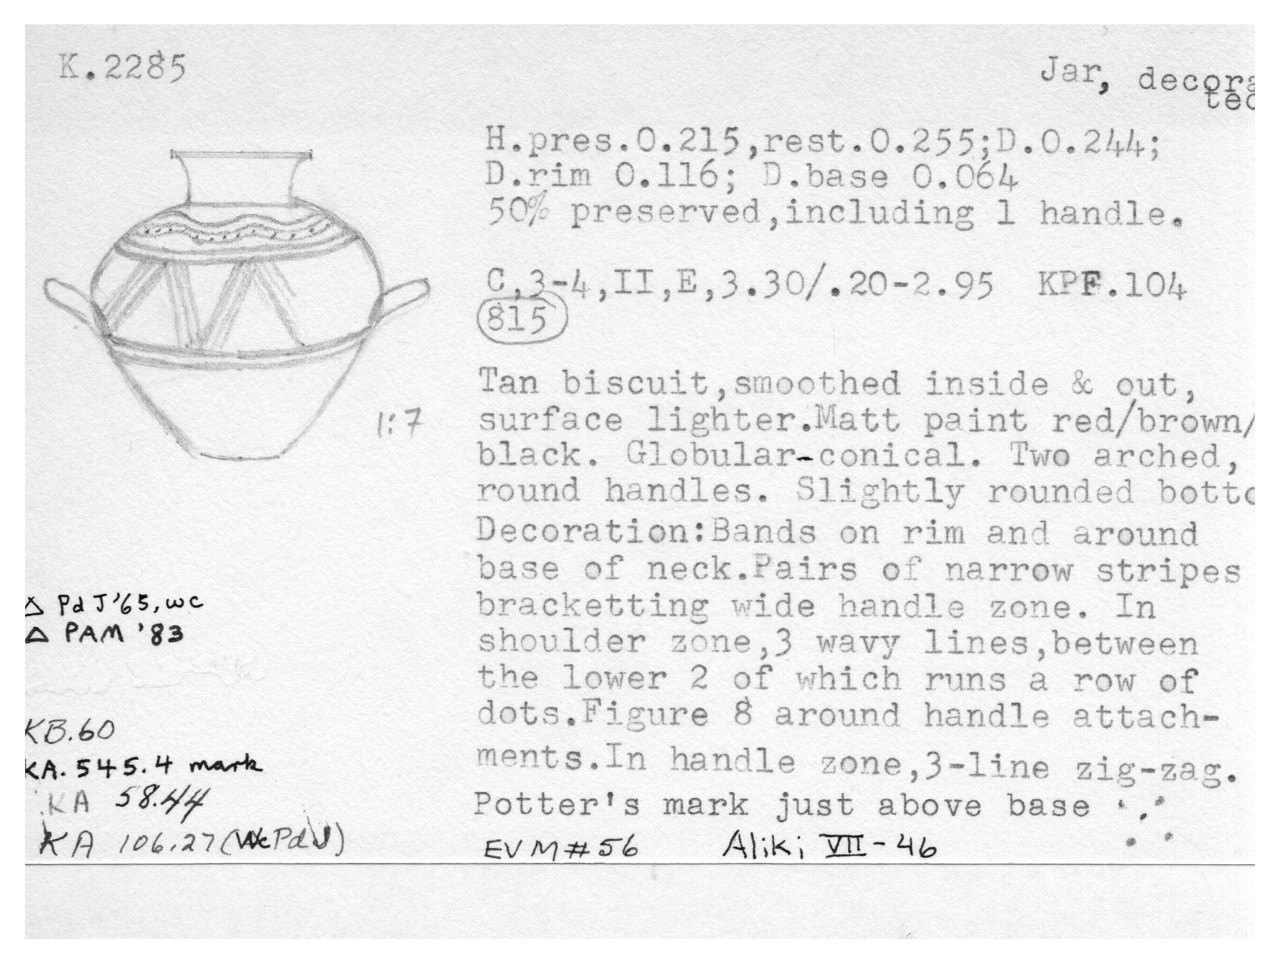 K.2285
Jar, decora
ted
H.pres.0.215,rest.0.255;D.0.244;
D.rim 0.116; D.base 0.064
50% preserved,including 1 handle.
C,3-4,II,E,3.30/.20-2.95 KPF.104
815
Tan biscuit,smoothed inside & out,
surface lighter.Matt paint red/brown/
black. Globular-conical. Two arched,
round handles. Slightly rounded botto
1:7
Decoration:Bands on rim and around
base of neck.Pairs of narrow stripes
bracketting wide handle zone. In
shoulder zone,3 wavy lines,between
the lower 2 of which runs a row of
dots.Figure 8 around handle attach-
ments.In handle zone,3-line zig-zag.
Potter's mark just above base
EVM#56 Aliki VII-46
△ PdJ'65,wc
△ PAM '83
KB.60
KA.545.4 mark
KA 58.44
KA 106.27(WcPdJ)